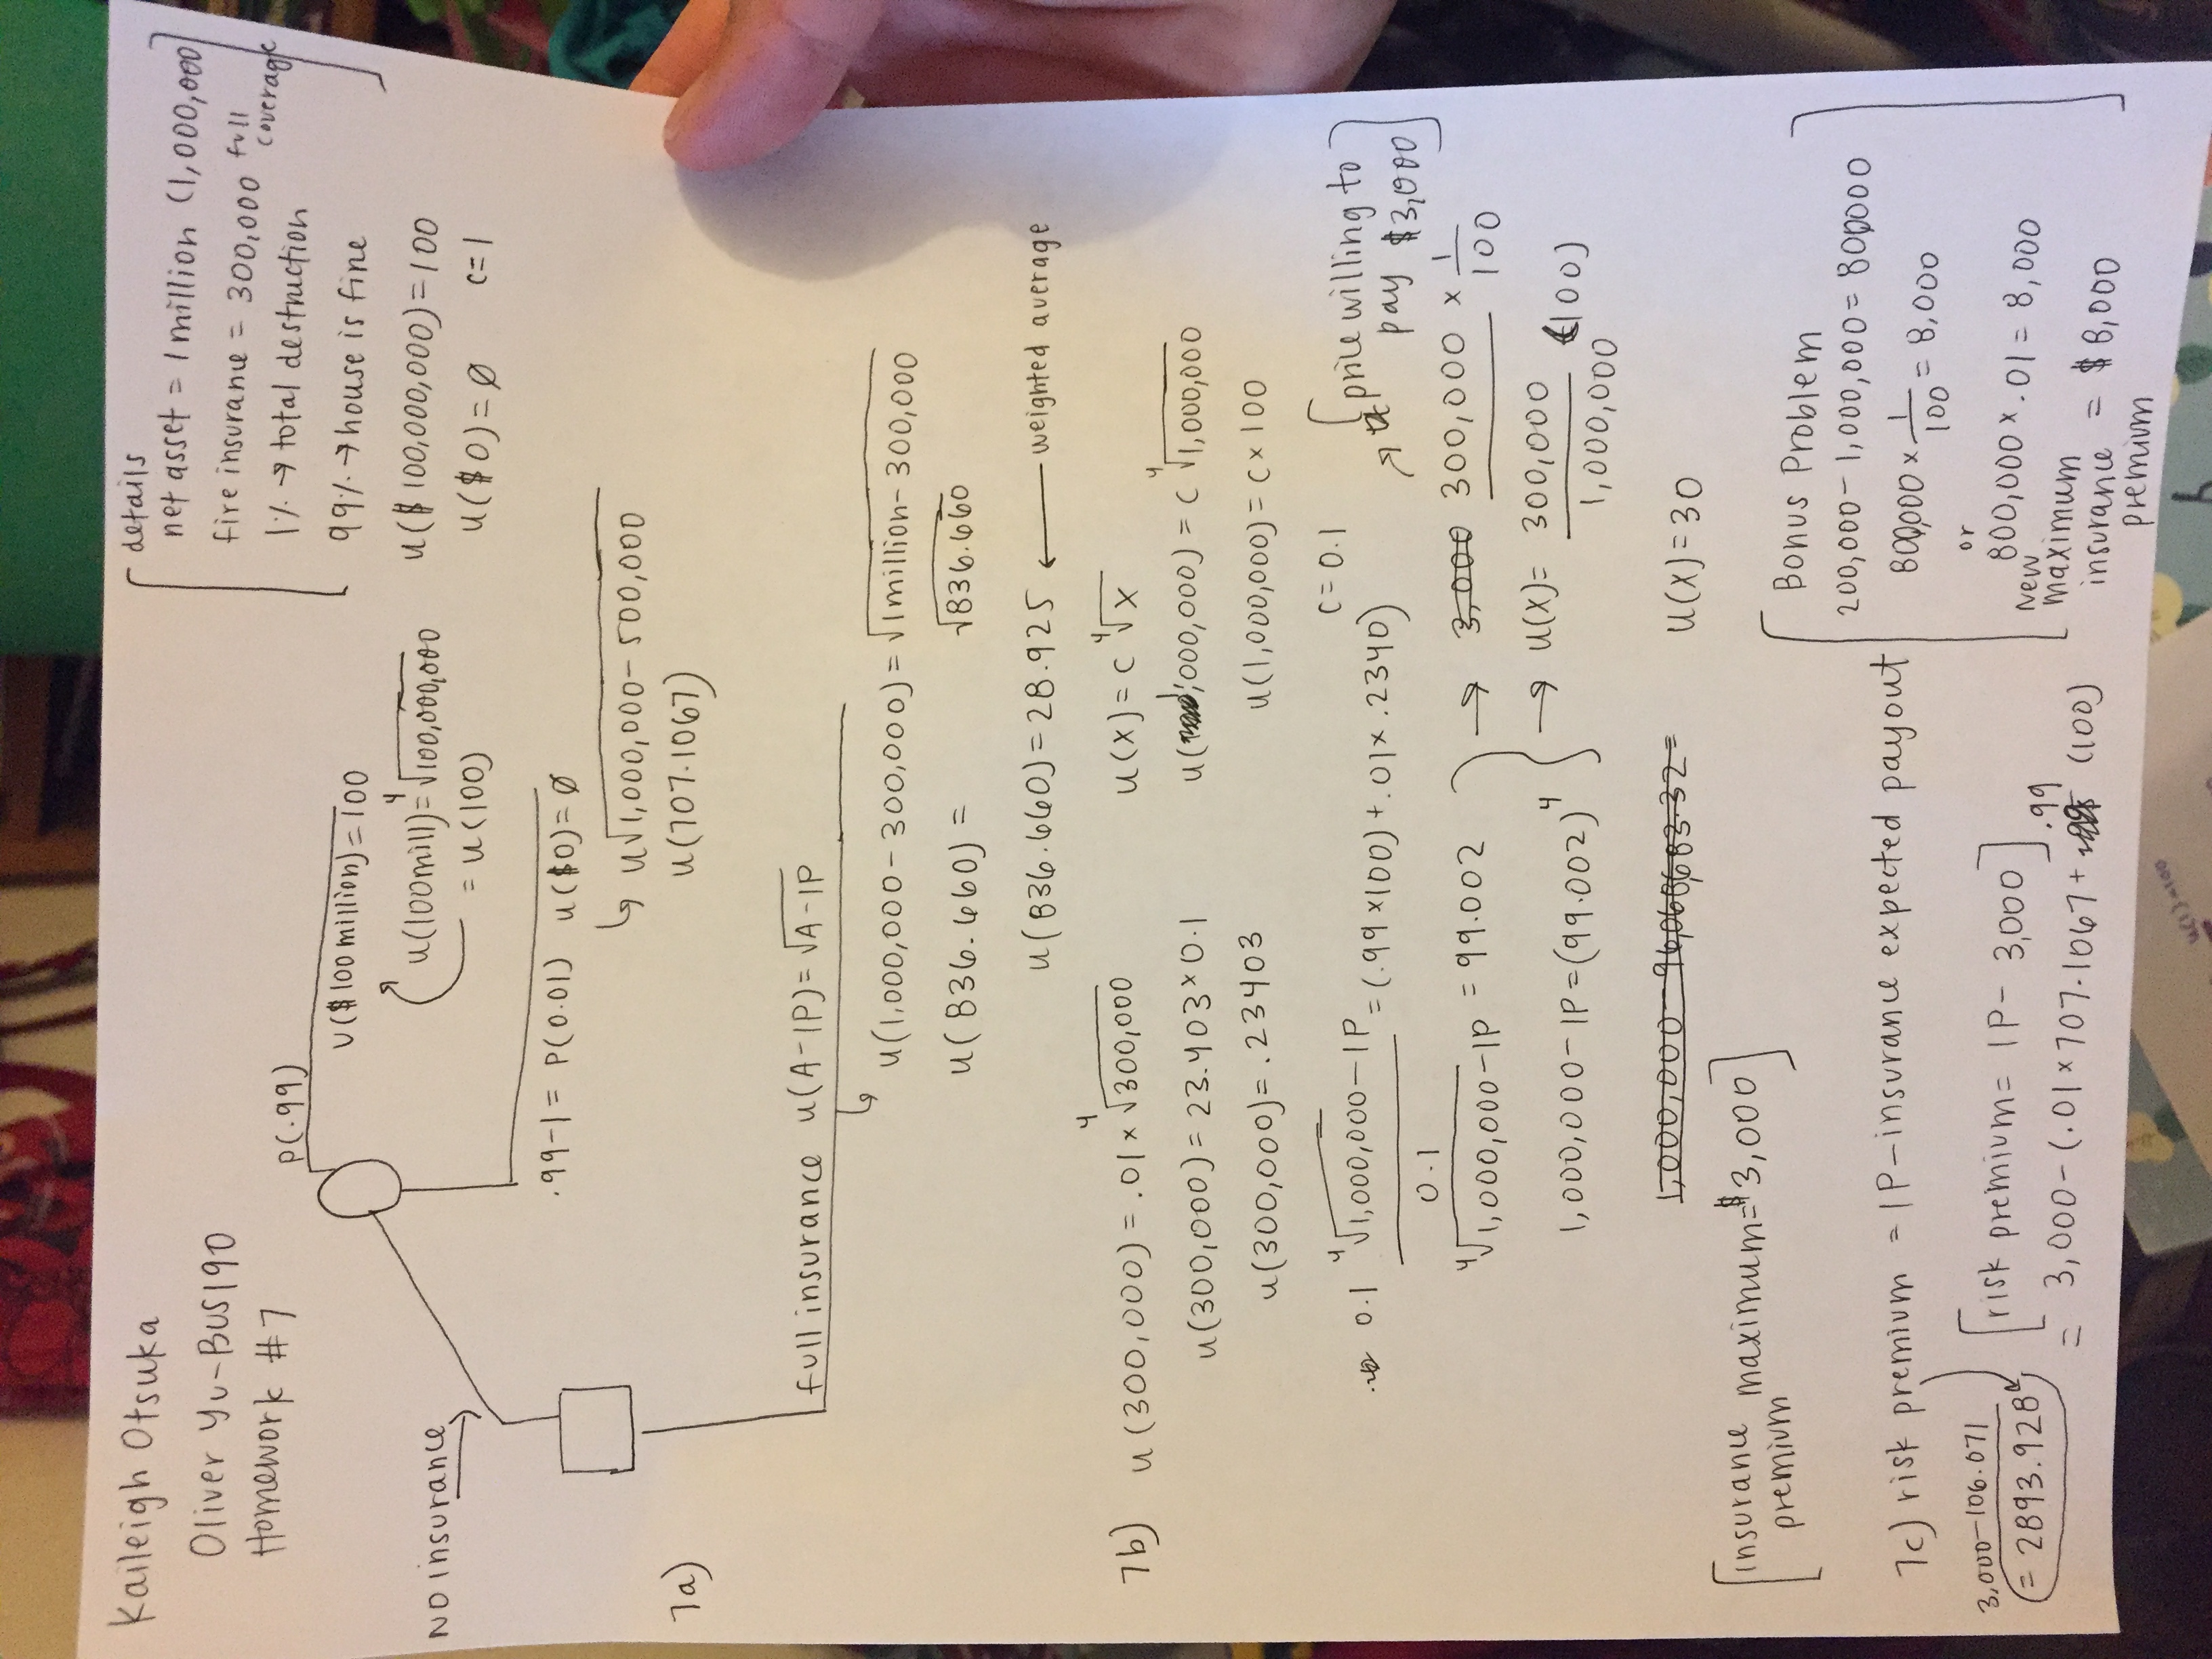 Kaileigh Otsuka
Oliver Yu-BUS190
Homework #7
[details
net asset = 1 million (1,000,000)
fire insurance = 300,000 full coverage
1% → total destruction
99% → house is fine
u($100,000,000) = 100
u($0) = Ø c=1]
NO insurance
P(.99)
U($100 million) = 100
u(100mill) = ⁴√100,000,000
= u(100)
.99-1 = P(0.01) u($0) = Ø
u√1,000,000-500,000
u(707.1067)
7a)
full insurance u(A-IP) = √A-IP
u(1,000,000-300,000) = √1million-300,000
u(836.660) = √836.660
u(836.660) = 28.925 ← weighted average
7b) u(300,000) = .01 x ⁴√300,000
u(300,000) = 23.403 x 0.1
u(300,000) = .23403
u(x) = c ⁴√x
u(1,000,000) = c ⁴√1,000,000
u(1,000,000) = c x 100
c = 0.1
0.1 ⁴√1,000,000-IP = (.99 x 100) + .01 x .2340)
0.1
[price willing to pay $3,000]
⁴√1,000,000-IP = 99.002 → 3,000 300,000 x 1/100
1,000,000-IP = (99.002)⁴ → u(x) = 300,000/1,000,000 (100)
1,000,000-96,068,683.32=
u(x) = 30
[insurance maximum = $3,000]
premium
7c) risk premium = IP - insurance expected payout
[risk premium = IP - 3,000]
= 3,000 - (.01 x 707.1067 + .99 (100)
3,000-106.071
= 2893.928
[Bonus Problem
200,000 - 1,000,000 = 800,000
800,000 x 1/100 = 8,000
or
800,000 x .01 = 8,000
new maximum insurance premium = $8,000]